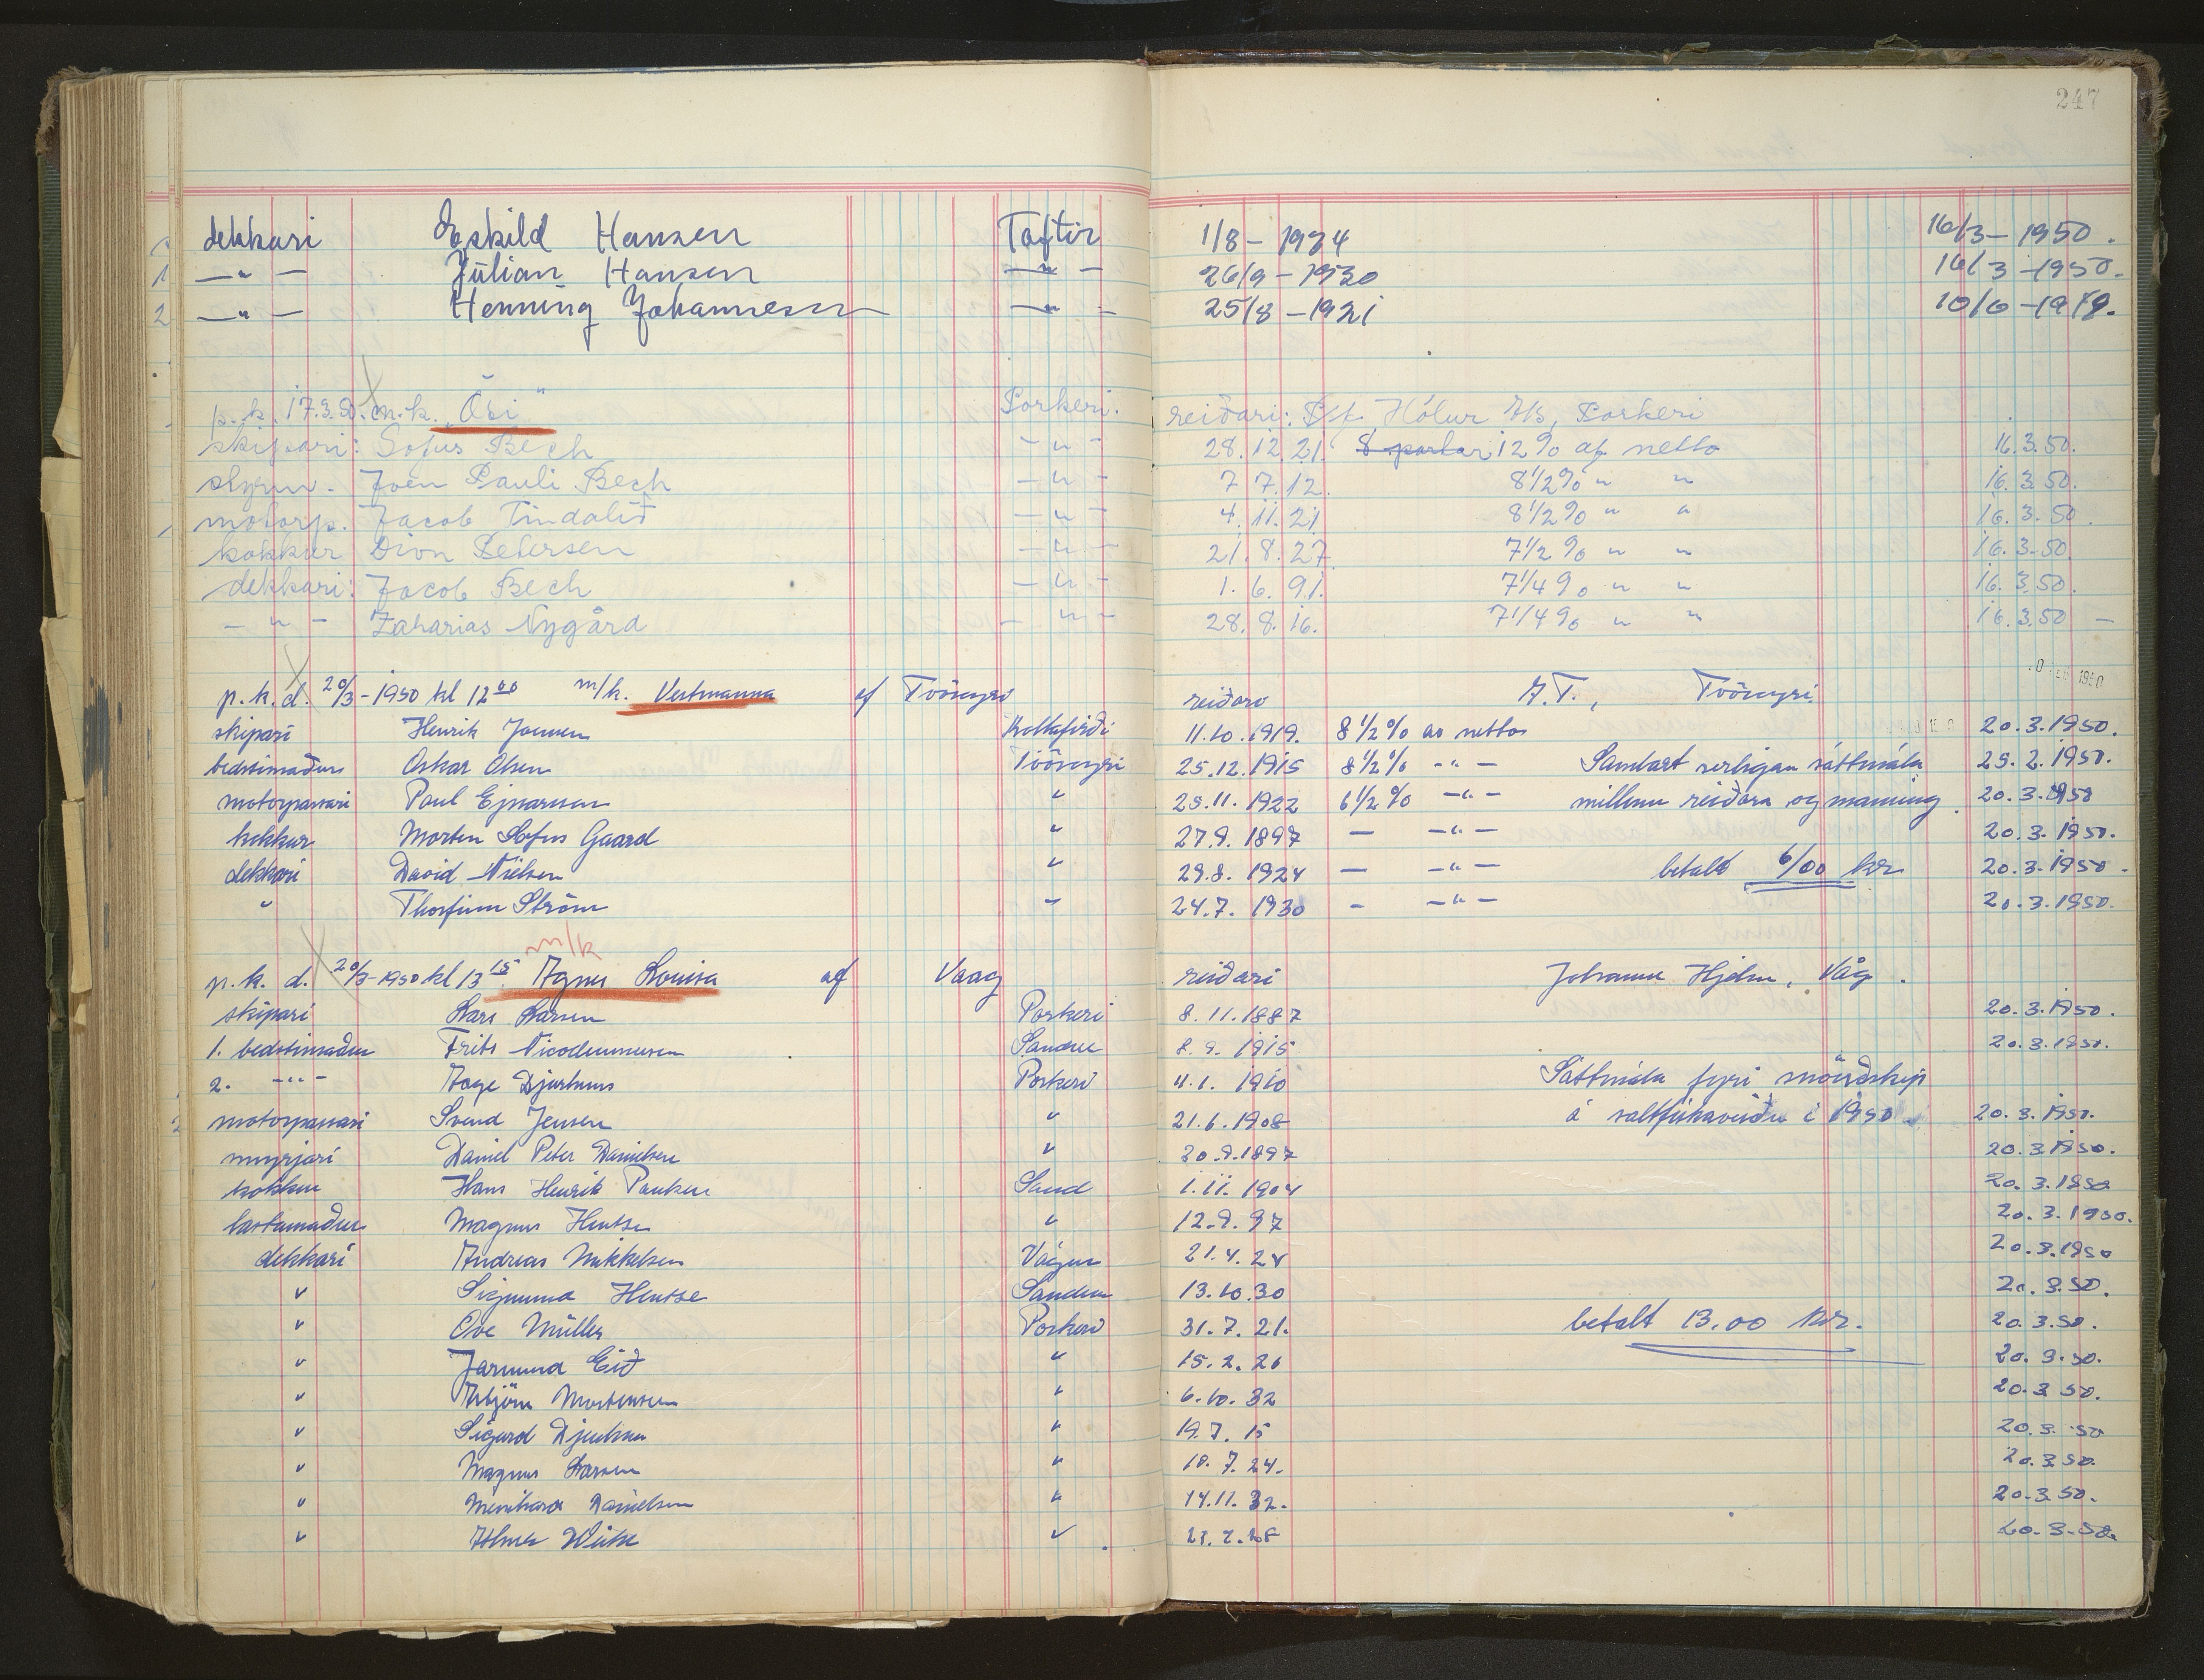 247
dekkari Eskild Hansen Toftir 1/8 - 1924 16/3 - 1950.
— " — Júlian Hansen — " — 26/9 - 1930 16/3 - 1950.
— " — Henning Johannesen — " — 25/8 - 1921
p.k. 17.3.50. m.k. "Obi" Porkeri. reiðari: P/f. Hólur A/s, Porkeri
skipari: Sofus Bech - " - 28.12.21. 12% af netto 16.3.50.
styrm. Jóen Pauli Bech - " - 7 7.12. 8 1/2% " " 16.3.50.
motorp. Jacob Tindalið - " - 4.11.21 8 1/2% " " 16.3.50.
kokkur Dion Petersen - " - 21.8.27. 7 1/2% " " 16.3.50.
dekkari: Jacob Bech - " - 1.6.91. 7 1/4% " " 16.3.50.
- " - Zakarias Nygård - " - 28.8.16. 7 1/4% " " 16.3.50 —
p.k.d. 20/3-1950 kl 12 00 m/k. Vestmanna af Tvöroyri reiðari T., Tvöroyri.
skipari Henrik Joensen Kollafirði 11.10.1919. 8 1/2% av netto 20.3.1950.
bedstimaður Oskar Olsen Tvöroyri 25.12.1915 8 1/2% - " - Sambart serligan sáttmála 25.2.1950.
motorpassari Paul Ejnarsson " 25.11.1922 6 1/2% - " - millum reiðara og manning. 20.3.1950
kokkur Morten Sofus Gaard " 27.9.1897 — - " - 20.3.1950.
dekkari David Nielsen " 29.8.1924 — - " - betalt 6/00 kr 20.3.1950.
" Thorfinn Ström " 24.7.1930 - - " - 20.3.1950.
m/k
p.k.d. 20/3-1950 kl 13 15. Agnes Louisa af Vaag reiðari Johannes Hjelm, Våg.
skipari Hans Larsen Porkeri 8.11.1887 20.3.1950.
1. bedstimaður Frits Nicodemussen Sandur 8.9.1915 20.3.1950.
2. - " - Aage Djurhuus Porkeri 4.1.1910 Sáttmála fyri snöriskip
motorpassari Svend Jensen " 21.6.1908 á saltfiskaveiðu í 1950. 20.3.1950.
smyrjari Daniel Peter Danielsen " 20.9.1897 20.3.1950.
kokkur Hans Henrik Poulsen Sand 1.11.1904 20.3.1950
lastamaður Magnus Hentze " 12.9.97 20.3.1950.
dekkari Andreas Mikkelsen Vágur 21.4.24 20.3.1950
" Sigmund Hentze Sandur 13.10.30 20.3.50.
" Ove Müller Porkeri 31.7.21. betalt 13,00 kr. 20.3.50.
" Jarmund Eið " 15.2.26 20.3.50.
" Asbjörn Mortensen " 6.10.32 20.3.50.
" Sigurd Djurhuus " 19.7.15 20.3.50
" Magnus Larsen " 10.7.24. 20.3.50.
" Meinhard Danielsen " 14.11.32. 20.3.50.
" " 20.3.50.